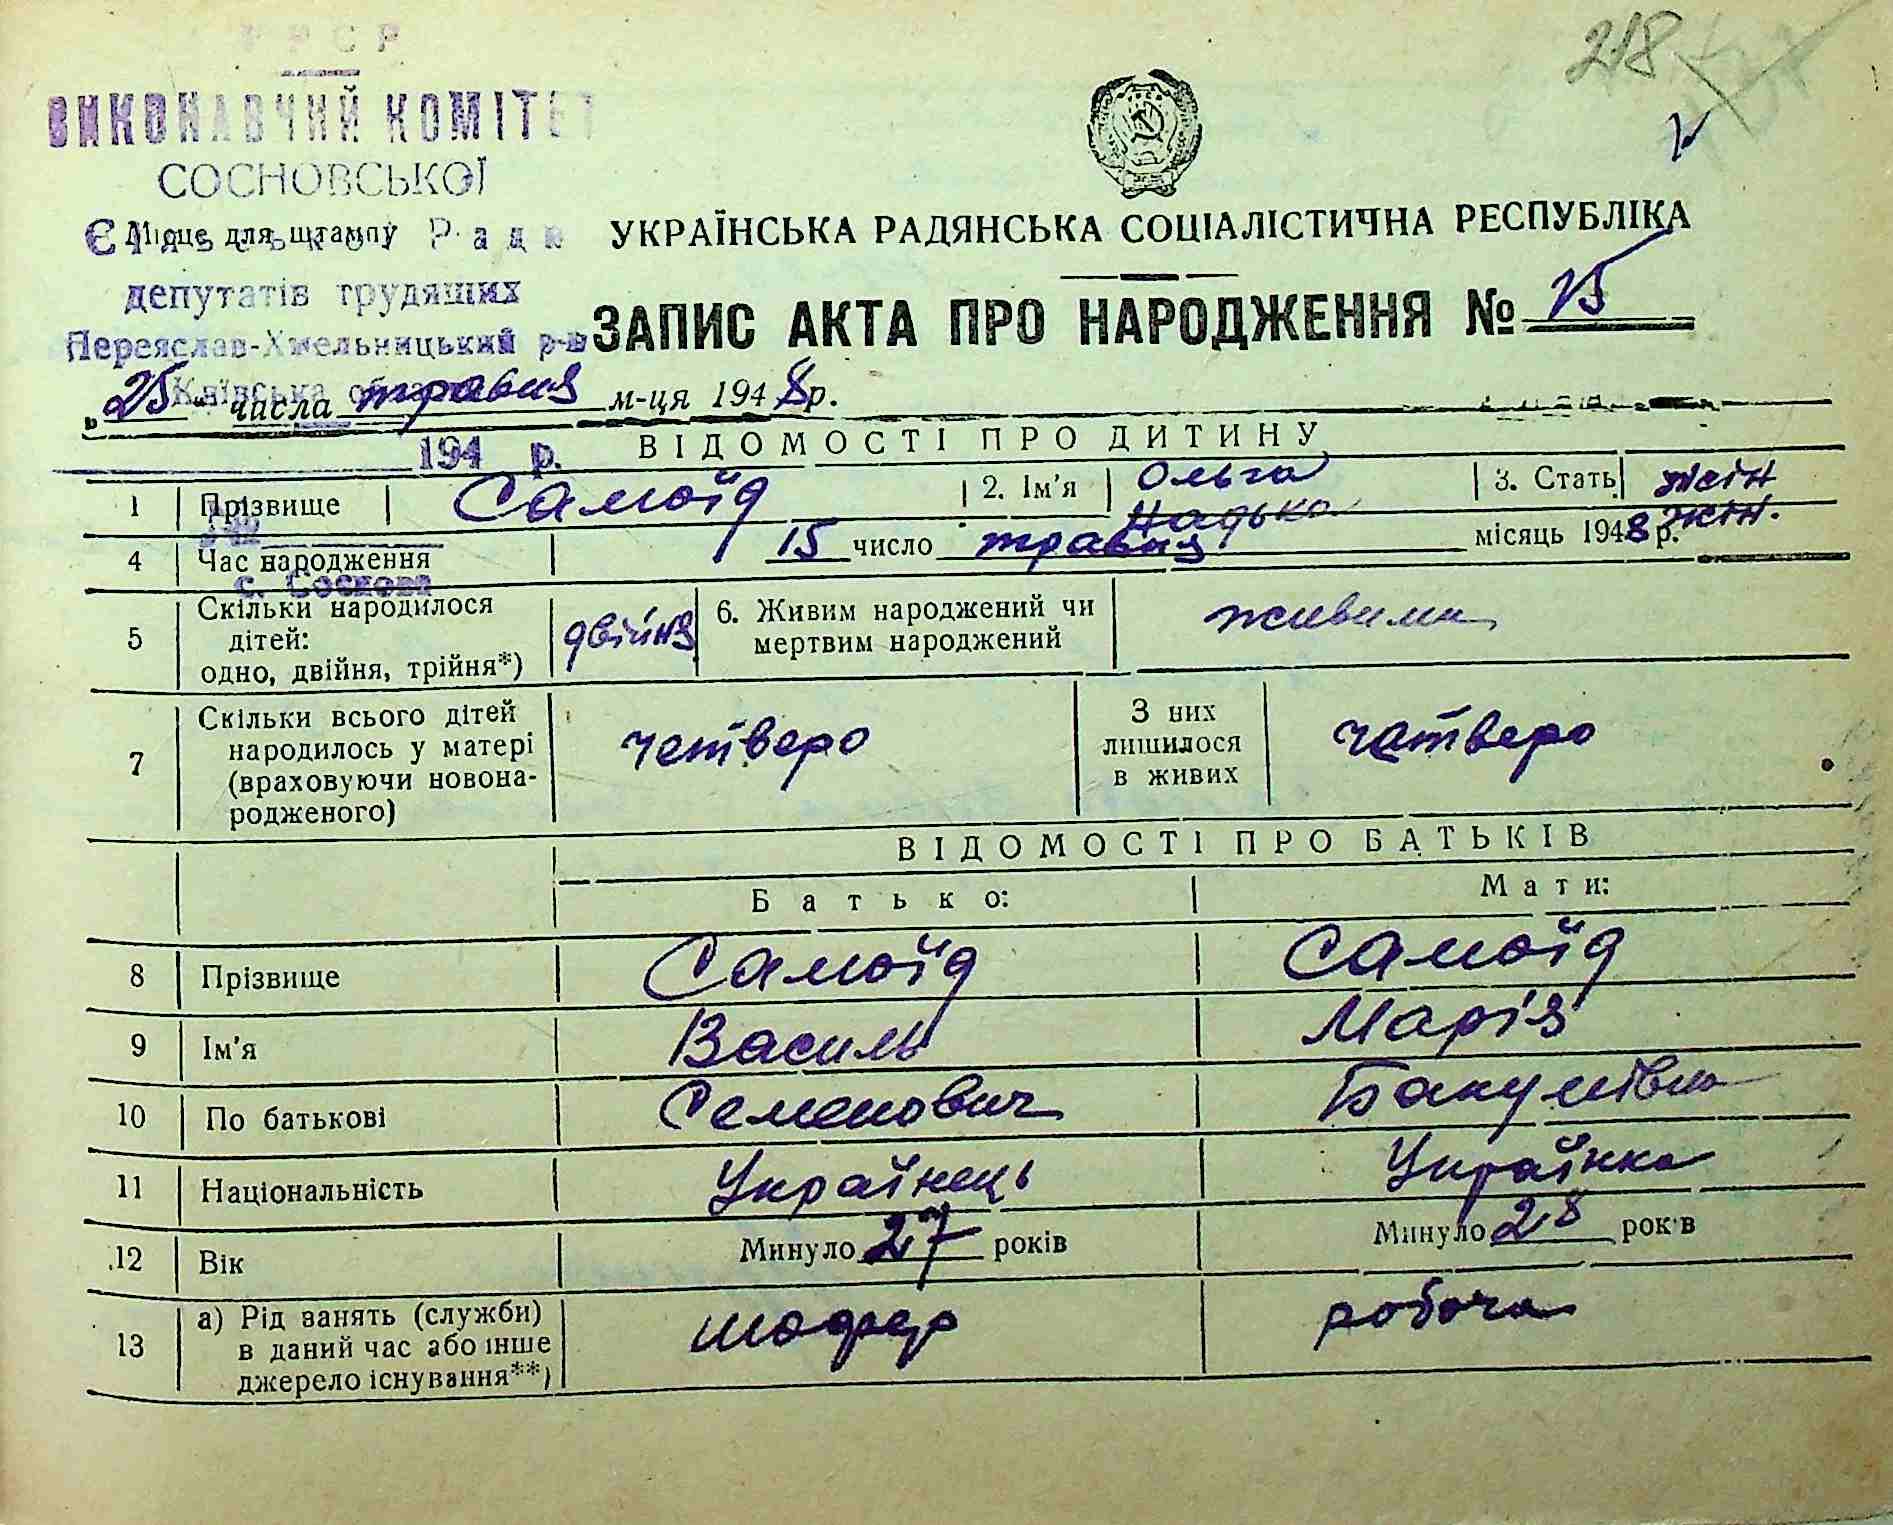 УРСР
218
ВИКОНАВЧИЙ КОМІТЕТ
СОСНОВСЬКОЇ
Місце для штампу
Рад
депутатів трудящих
Переяслав-Хмельницький р-н
Київська
УКРАЇНСЬКА РАДЯНСЬКА СОЦІАЛІСТИЧНА РЕСПУБЛІКА
ЗАПИС АКТА ПРО НАРОДЖЕННЯ № 15
„25" числа травня м-ця 1948 р.
194 р.
ВІДОМОСТІ ПРО ДИТИНУ
1 Прізвище Самоїд 2. Ім'я Ольга Надька 3. Стать жін жін.
4 Час народження 15 число травня місяць 1948 р.
с. Соснова
5 Скільки народилося дітей: одно, двійня, трійня*) двійня 6. Живим народжений чи мертвим народжений живими
7 Скільки всього дітей народилось у матері (враховуючи новонародженого) четверо З них лишилося в живих четверо
ВІДОМОСТІ ПРО БАТЬКІВ
Батько: Мати:
8 Прізвище Самоїд Самоїд
9 Ім'я Василь Марія
10 По батькові Семенович
11 Національність Українець Українка
12 Вік Минуло 27 років Минуло 28 років
13 а) Рід занять (служби) в даний час або інше джерело існування**) шофер робоча